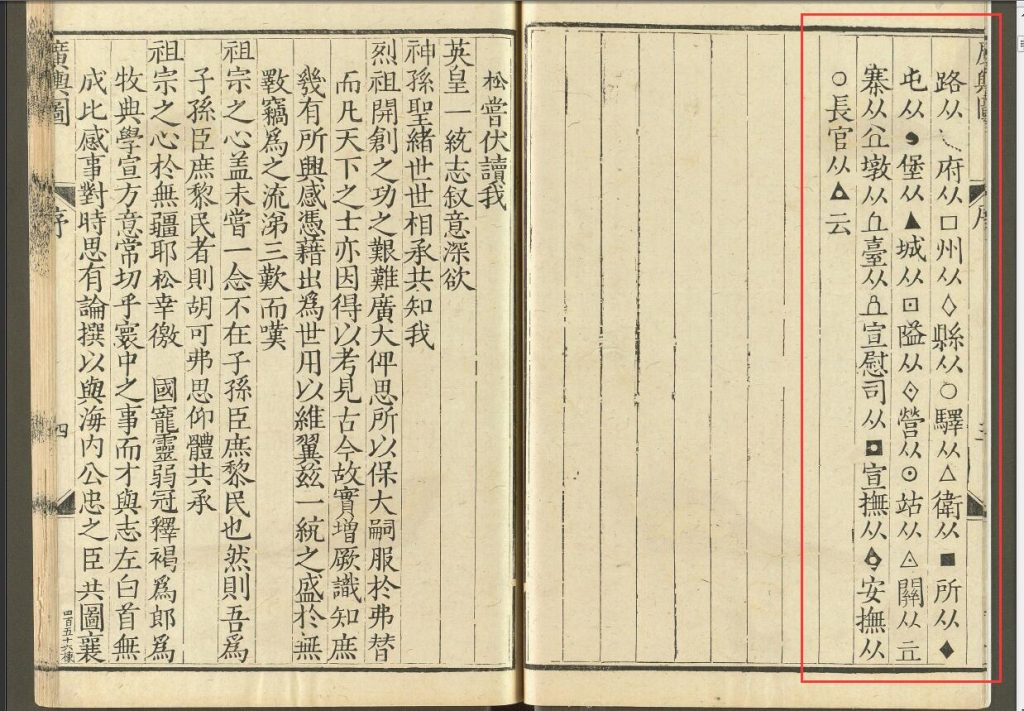 廣輿圖 序
路从⋱府从□州从◇縣从○驛从△衛从■所从◆
屯从❟堡从▲城从⊡隘从⟐營从⊙站从◬關从
寨从墩从臺从宣慰司从◘宣撫从◈安撫从
○長官从云
松嘗伏讀我
英皇一統志叙意深欲
神孫聖緒世世相承共知我
烈祖開創之功之艱難廣大俾思所以保大嗣服於弗替
而凡天下之士亦因得以考見古今故實增厥識知庶
幾有所興感憑藉出爲世用以維翼兹一統之盛於無
斁竊爲之流涕三歎而嘆
祖宗之心盖未嘗一念不在子孫臣庶黎民也然則吾爲
子孫臣庶黎民者則胡可弗思仰體共承
祖宗之心於無疆耶松幸徼 國寵靈弱冠釋褐爲郎爲
牧典學宣方意常切乎寰中之事而才與志左白首無
成比感事對時思有論撰以與海内公忠之臣共圖襄
廣輿圖 序 四
四百五十六棟